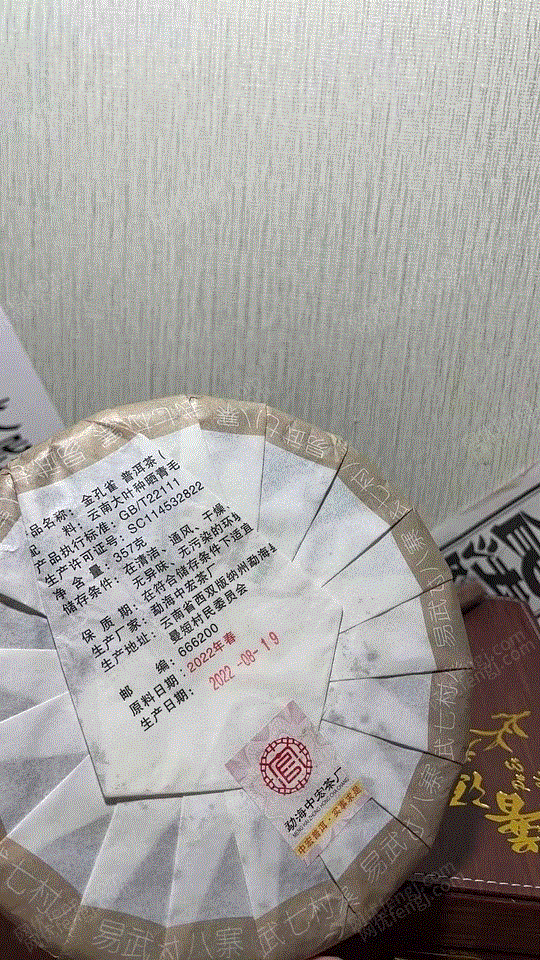 品名称：金孔雀 普洱茶（
料：云南大叶种晒青毛
产品执行标准：GB/T22111
生产许可证号：SC114532822
净 含 量：357克
储存条件：在清洁、通风、干燥、
无异味、无污染的环境
保 质 期：在符合储存条件下适宜
生产厂家：勐海中宏茶厂
生产地址：云南省西双版纳州勐海县
曼短村民委员会
邮 编：666200
原料日期：2022年春
生产日期：2022-08-19
勐海中宏茶厂
中宏普洱·实事求是
易武七村八寨
易武七村八寨
易武七村八寨
易武七村八寨